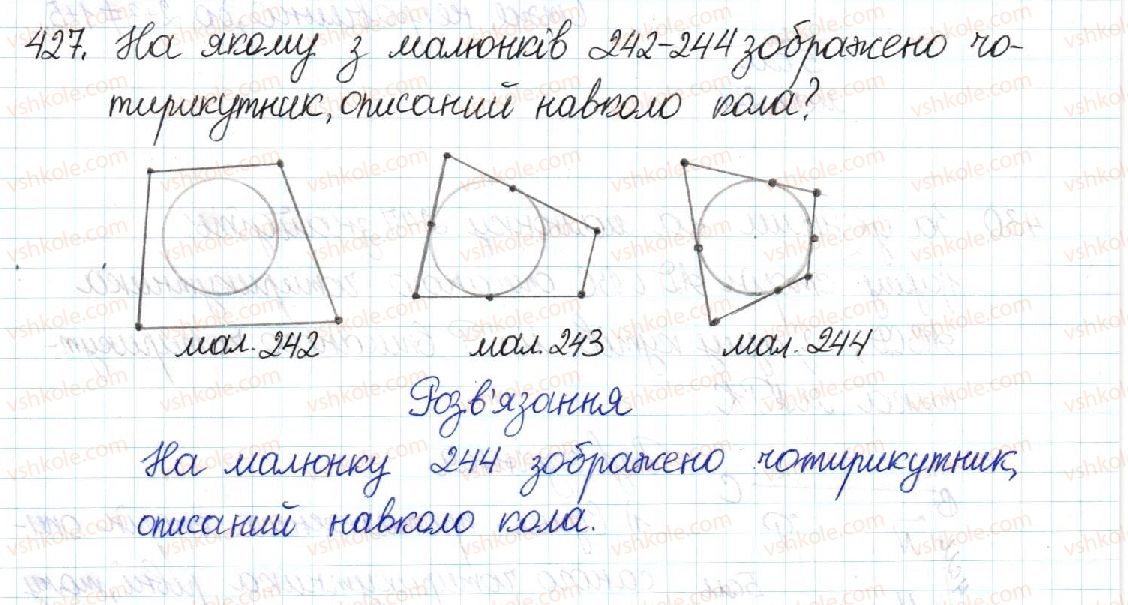 427. На якому з малюнків 242-244 зображено чо-
тирикутник, описаний навколо кола?
мал. 242 мал. 243 мал. 244
Розв'язання
На малюнку 244 зображено чотирикутник,
описаний навколо кола.